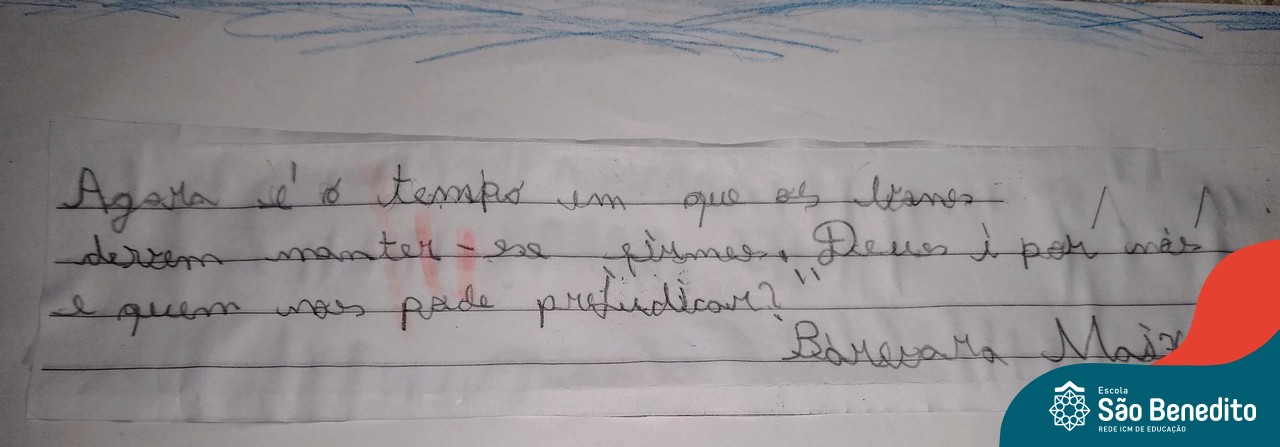 Agora é o tempo em que os bons
devem manter-se firmes. Deus é por nós
e quem nos pode prejudicar?"
Bárvara Maix
Escola
São Benedito
REDE ICM DE EDUCAÇÃO